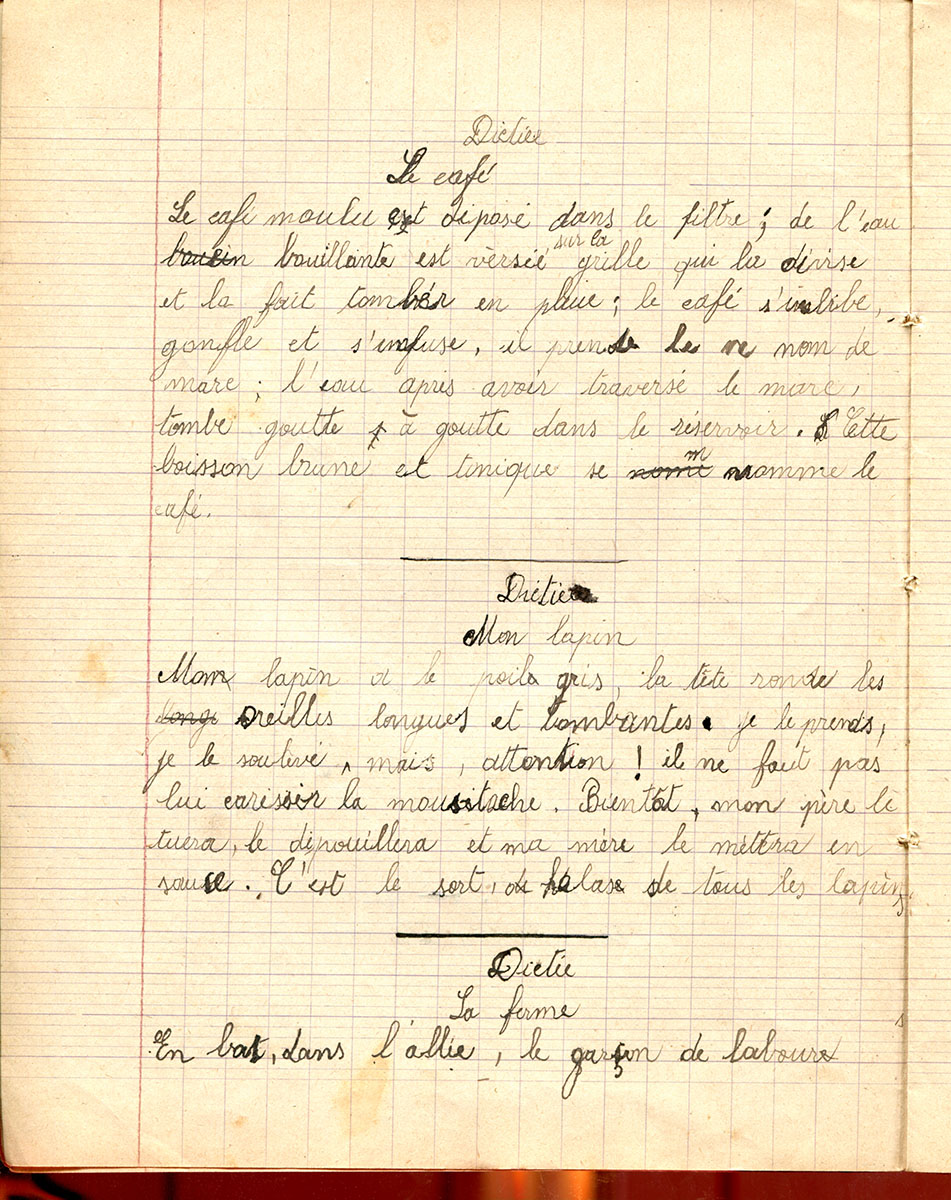 Dictée
Le café
Le café moulu est diposé dans le filtre ; de l'eau
bouein bouillante est versée sur la grille qui la divise
et la fait tomber en pluie ; le café s'imbibe,
gonfle et s'infuse, il prend le nom de
marc ; l'eau après avoir traversé le marc,
tombe goutte à goutte dans le réservoir. Cette
boisson brune et tonique se nomme le
café.
Dictée
Mon lapin
Mon lapin a le poil gris, la tête ronde les
longe oreilles longues et tombantes. je le prends,
je le soulève, mais, attention ! il ne faut pas
lui caresser la moustache. Bientôt, mon père le
tuera, le dépouillera et ma mère le mettra en
sauce. C'est le sort, de hélas de tous les lapins
Dictée
La ferme
En bas, dans l'allée, le garçon de labour